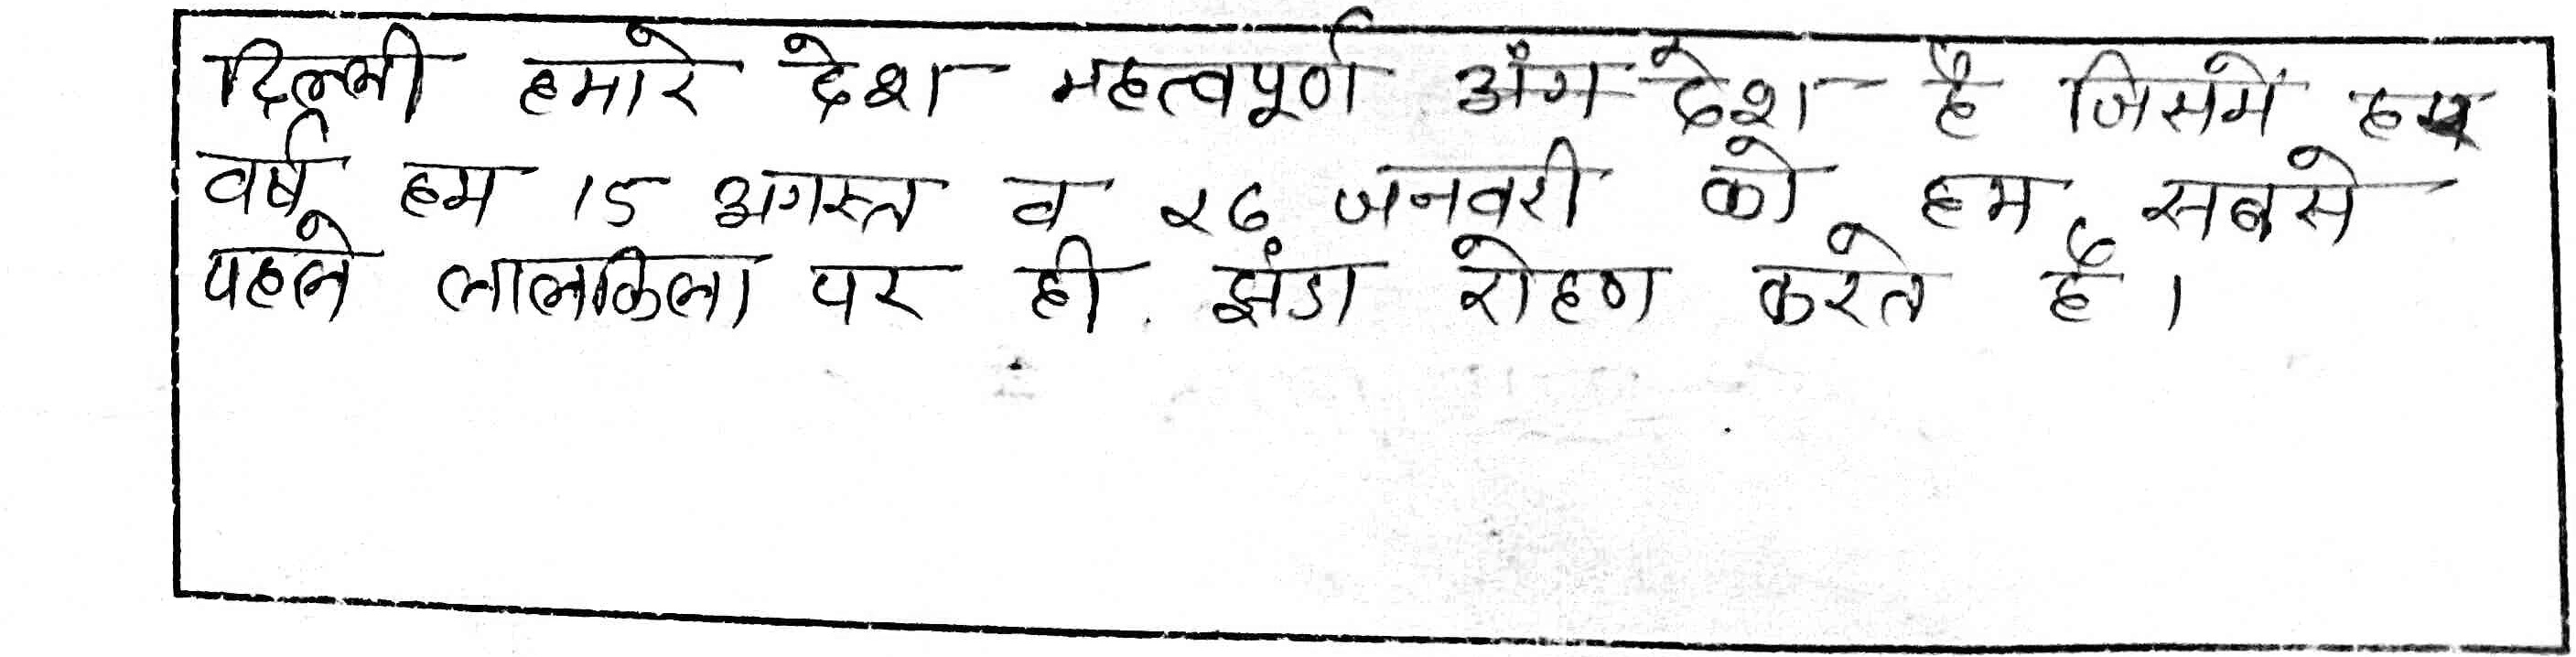 दिल्ली हमारे देश महत्वपूर्ण अंग देश है जिसमें हर
वर्ष हम 15 अगस्त व 26 जनवरी को हम सबसे
पहले लालकिला पर ही झंडा रोहण करते है।